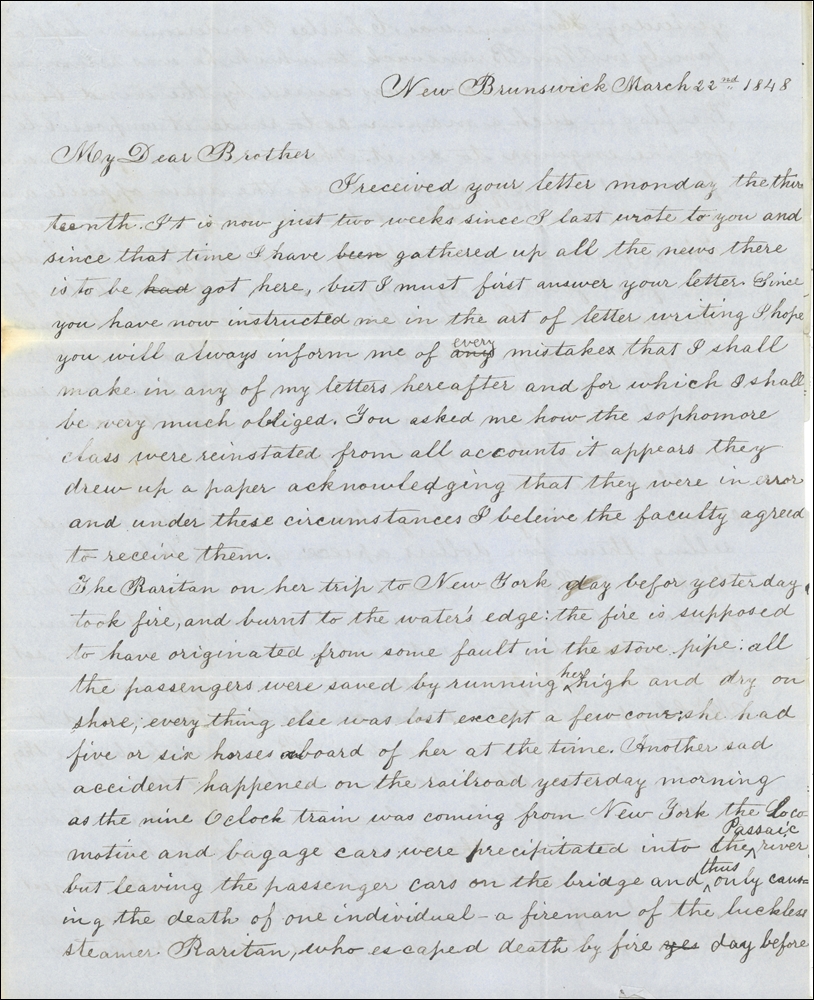 New Brunswick March 22nd 1848
My Dear Brother
I received your letter monday the thir
teenth. It is now just two weeks since I last wrote to you and
since that time I have been gathered up all the news there
is to be had got here, but I must first answer your letter. Since
you have now instructed me in the art of letter writing I hope
you will always inform me of any every mistakes that I shall
make in any of my letters hereafter and for which I shall
be very much obliged. You asked me how the sophomore
class were reinstated from all accounts it appears they
drew up a paper acknowledging that they were in error
and under these circumstances I beleive the faculty agreed
to receive them.
The Raritan on her trip to New York day befor yesterday
took fire, and burnt to the water's edge: the fire is supposed
to have originated from some fault in the stove pipe: all
the passengers were saved by running her high and dry on
shore; every thing else was lost except a few cows; she had
five or six horses aboard of her at the time. Another sad
accident happened on the railroad yesterday morning
as the nine Oclock train was coming from New York the Loco-
motive and bagage cars were precipitated into the Passaic river
but leaving the passenger cars on the bridge and thus only caus=
ing the death of one individual - a fireman of the luckless
steamer Raritan, who escaped death by fire yes day before